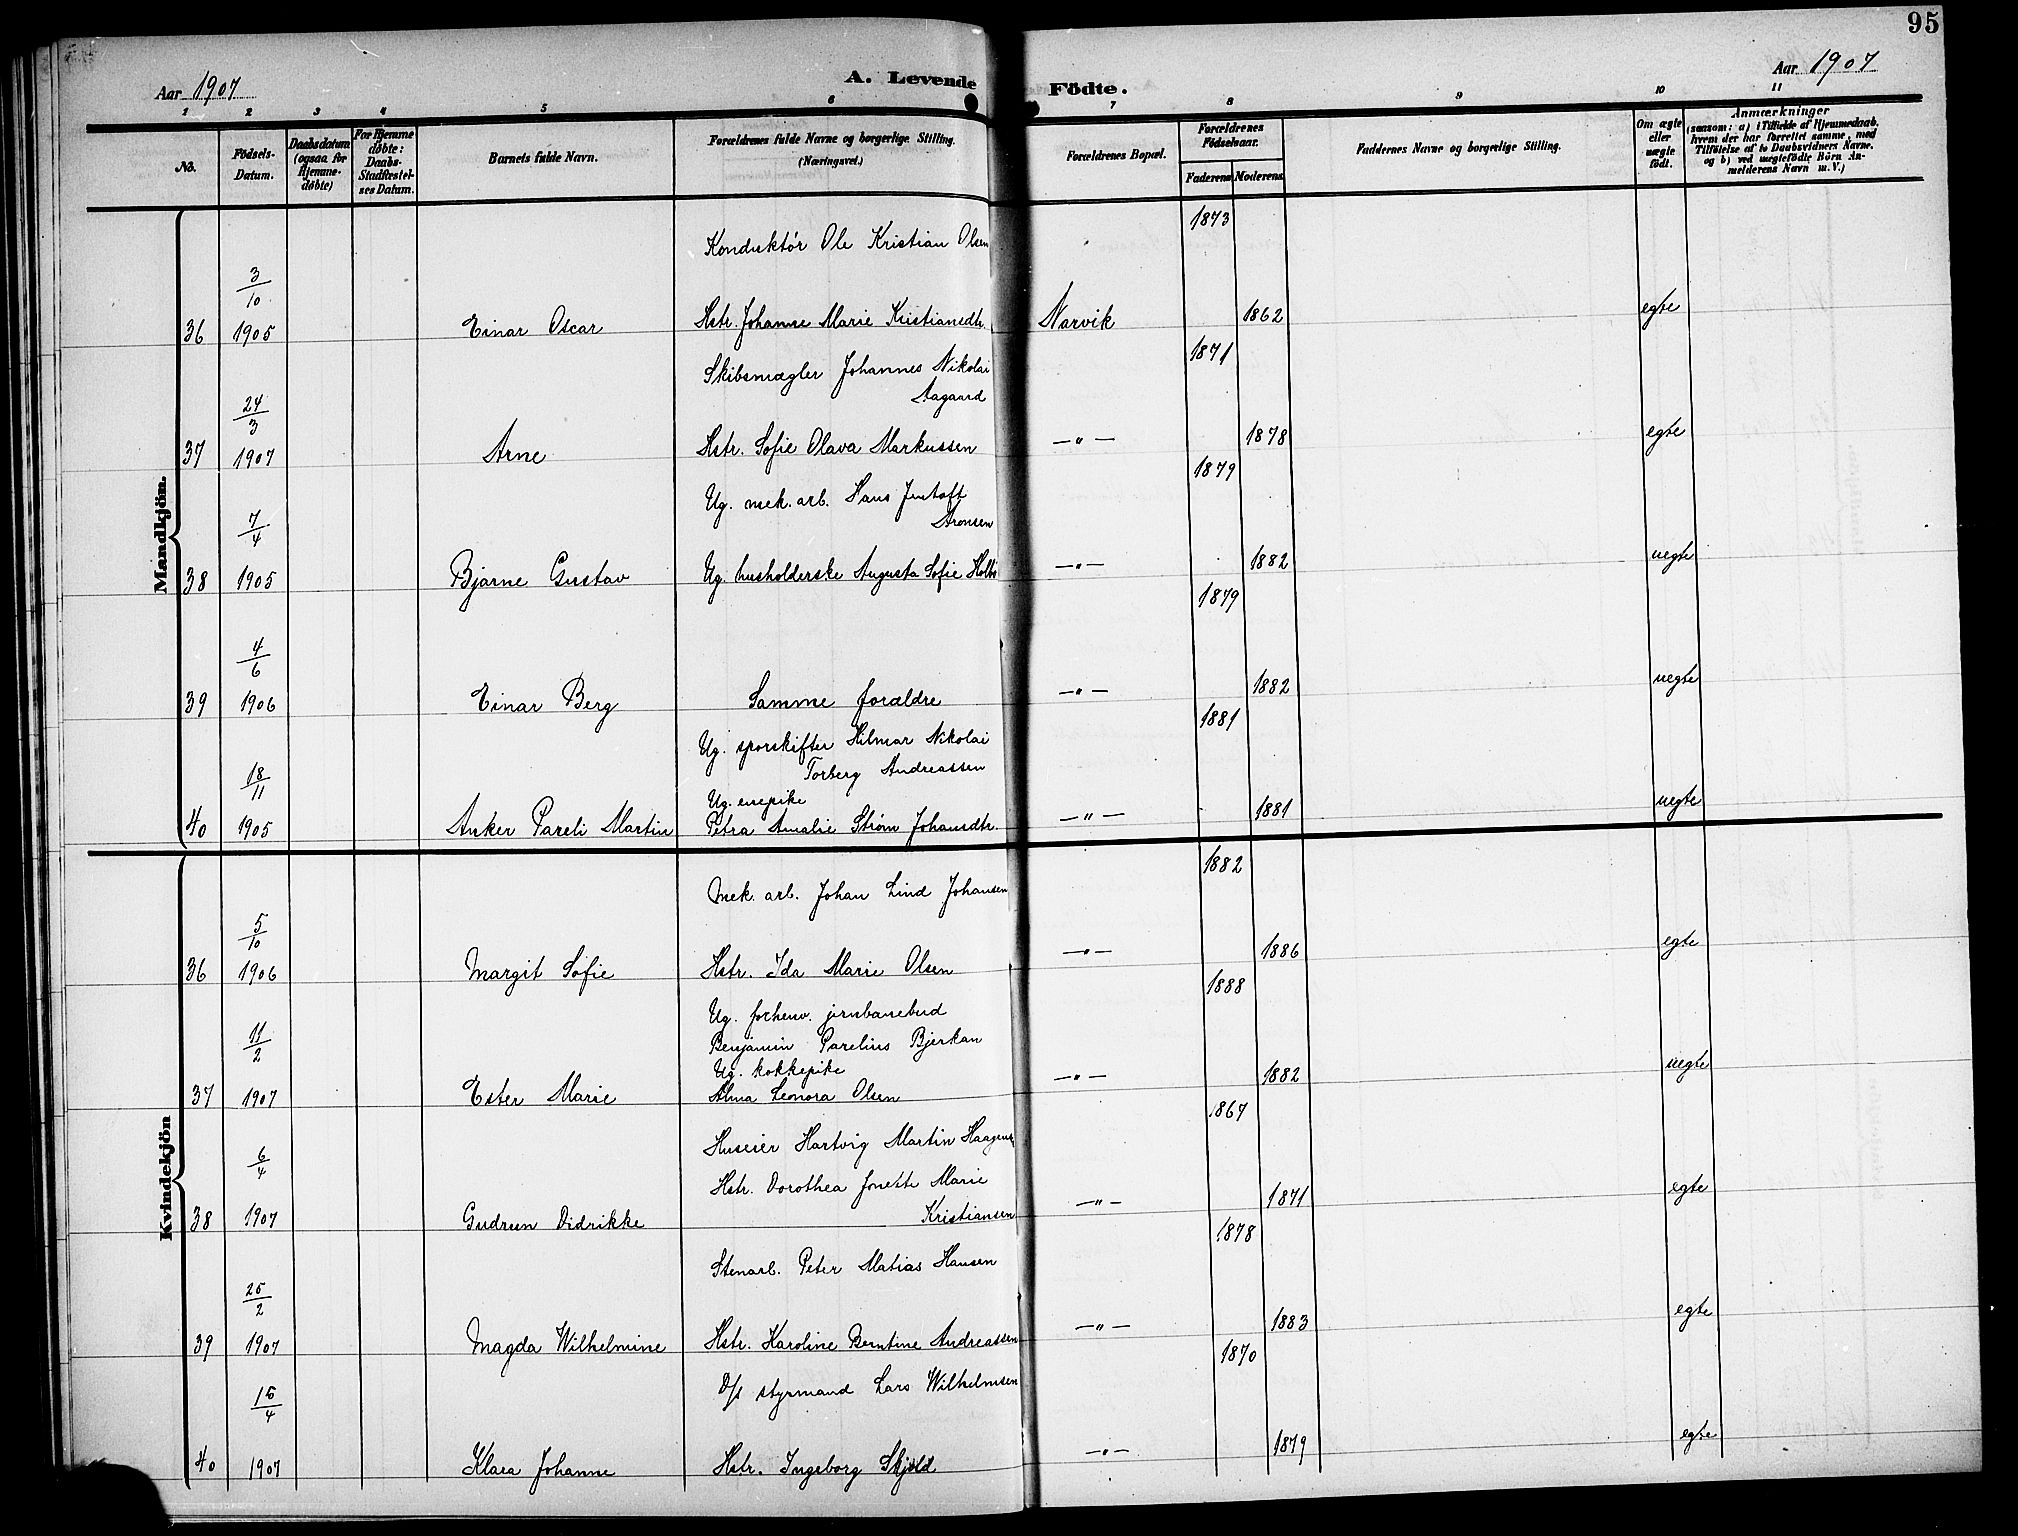 95
Aar 1907
A. Levende Födte.
Aar 1907
1 2 3 4 5 6 7 8 9 10 11
No.
Födsels-Datum.
Daabsdatum (ogsaa for Hjemme-døbte)
For Hjemme døbte: Daabs-Stadfæstel-ses Datum.
Barnets fulde Navn.
Forældrenes fulde Navne og borgerlige Stilling. (Næringsvei.)
Forældrenes Bopæl.
Forældrenes Födselsaar.
Faderens
Moderens
Faddernes Navne og borgerlige Stilling.
Om ægte eller uægte født.
Anmærkninger
(saasom: a) i Tilfælde af Hjemmedaab, hvem der har forrettet samme, med Tilföielse af to Daabsvidners Navne, og b) ved uegtefödte Börn An-melderens Navn m.V.)
Mandkjön.
1873
Konduktör Ole Kristian Olsen
3/10
36 1905 Einar Oscar Hstr. Johanne Marie Kristiansdtr. Narvik 1862 egte
1871
Skibsmægler Johannes Nikolai
Aagaard
24/3
37 1907 Arne Hstr. Sofie Olava Markussen —"— 1878 egte
1879
Ug. mek. arb. Hans Jentoft
Aronsen
7/4
38 1905 Bjarne Gustav Ug. husholderske Augusta Sofie —"— 1882 uegte
1879
4/6
39 1906 Einar Berg Samme forældre —"— 1882 uegte
1881
Ug. sporskifter Hilmar Nikolai
Torberg Andreassen
18/11
Ug.
40 1905 Anker Pareli Martin Petra Amalie Strøm Johansdtr. —"— 1881 uegte
Kvindekjön
1882
Mek. arb. Johan Lind Johansen
5/10
36 1906 Margit Sofie Hstr. Ida Marie Olsen —"— 1886 egte
1888
Ug. forhenv. jernbanebud
11/2
Benjamin Parelius Bjerkan
Ug. kokkepike
37 1907 Ester Marie Alma Leonora Olsen —"— 1882 uegte
1867
Huseier Hartvig Martin
6/4
Hstr. Dorothea Jonette Marie
38 1907 Gudrun Didrikke Kristiansen —"— 1871 egte
1878
Stenarb. Peter Matias Hansen
25/2
39 1907 Magda Wilhelmine Hstr. Karoline Berntine Andreassen —"— 1883 egte
1870
D/s styrmand Lars Wilhelmsen
15/4
40 1907 Klara Johanne Hstr. Ingeborg Skjold —"— 1879 egte